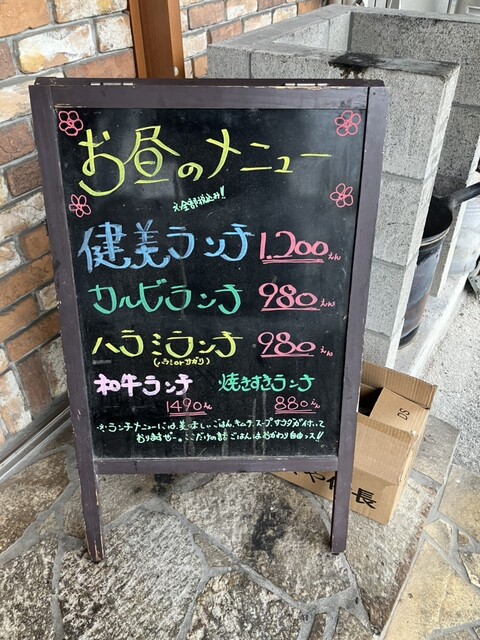 お昼のメニュー
※全部税込み!!
健美ランチ 1.200えん
カルビランチ 980えん
ハラミランチ 980えん
(ハラミorサガリ)
和牛ランチ 焼きすきランチ
1490えん 880えん
※ランチメニューには、美味しいごはん、キムチ、スープ、サラダが付いて
おりますぜ〜。ここだけの話ごはんはおかわり自由っス!!
50
や 長